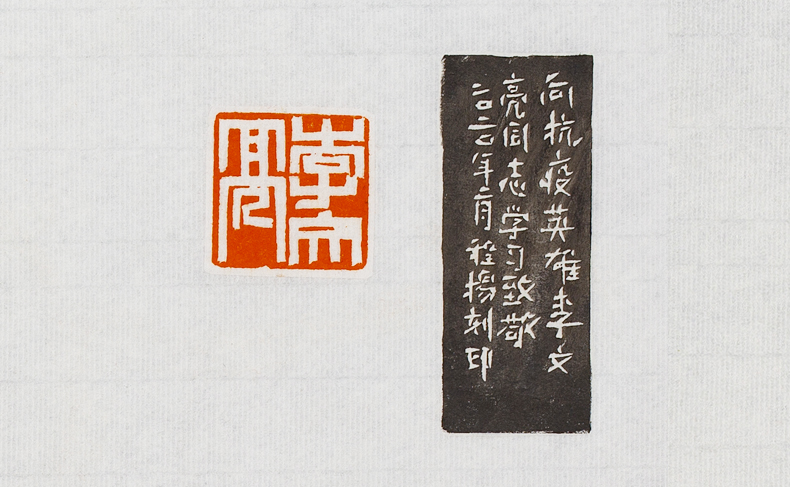 李文
亮
向抗疫英雄李文
亮同志学习致敬
二〇二〇年二月程揚刻印